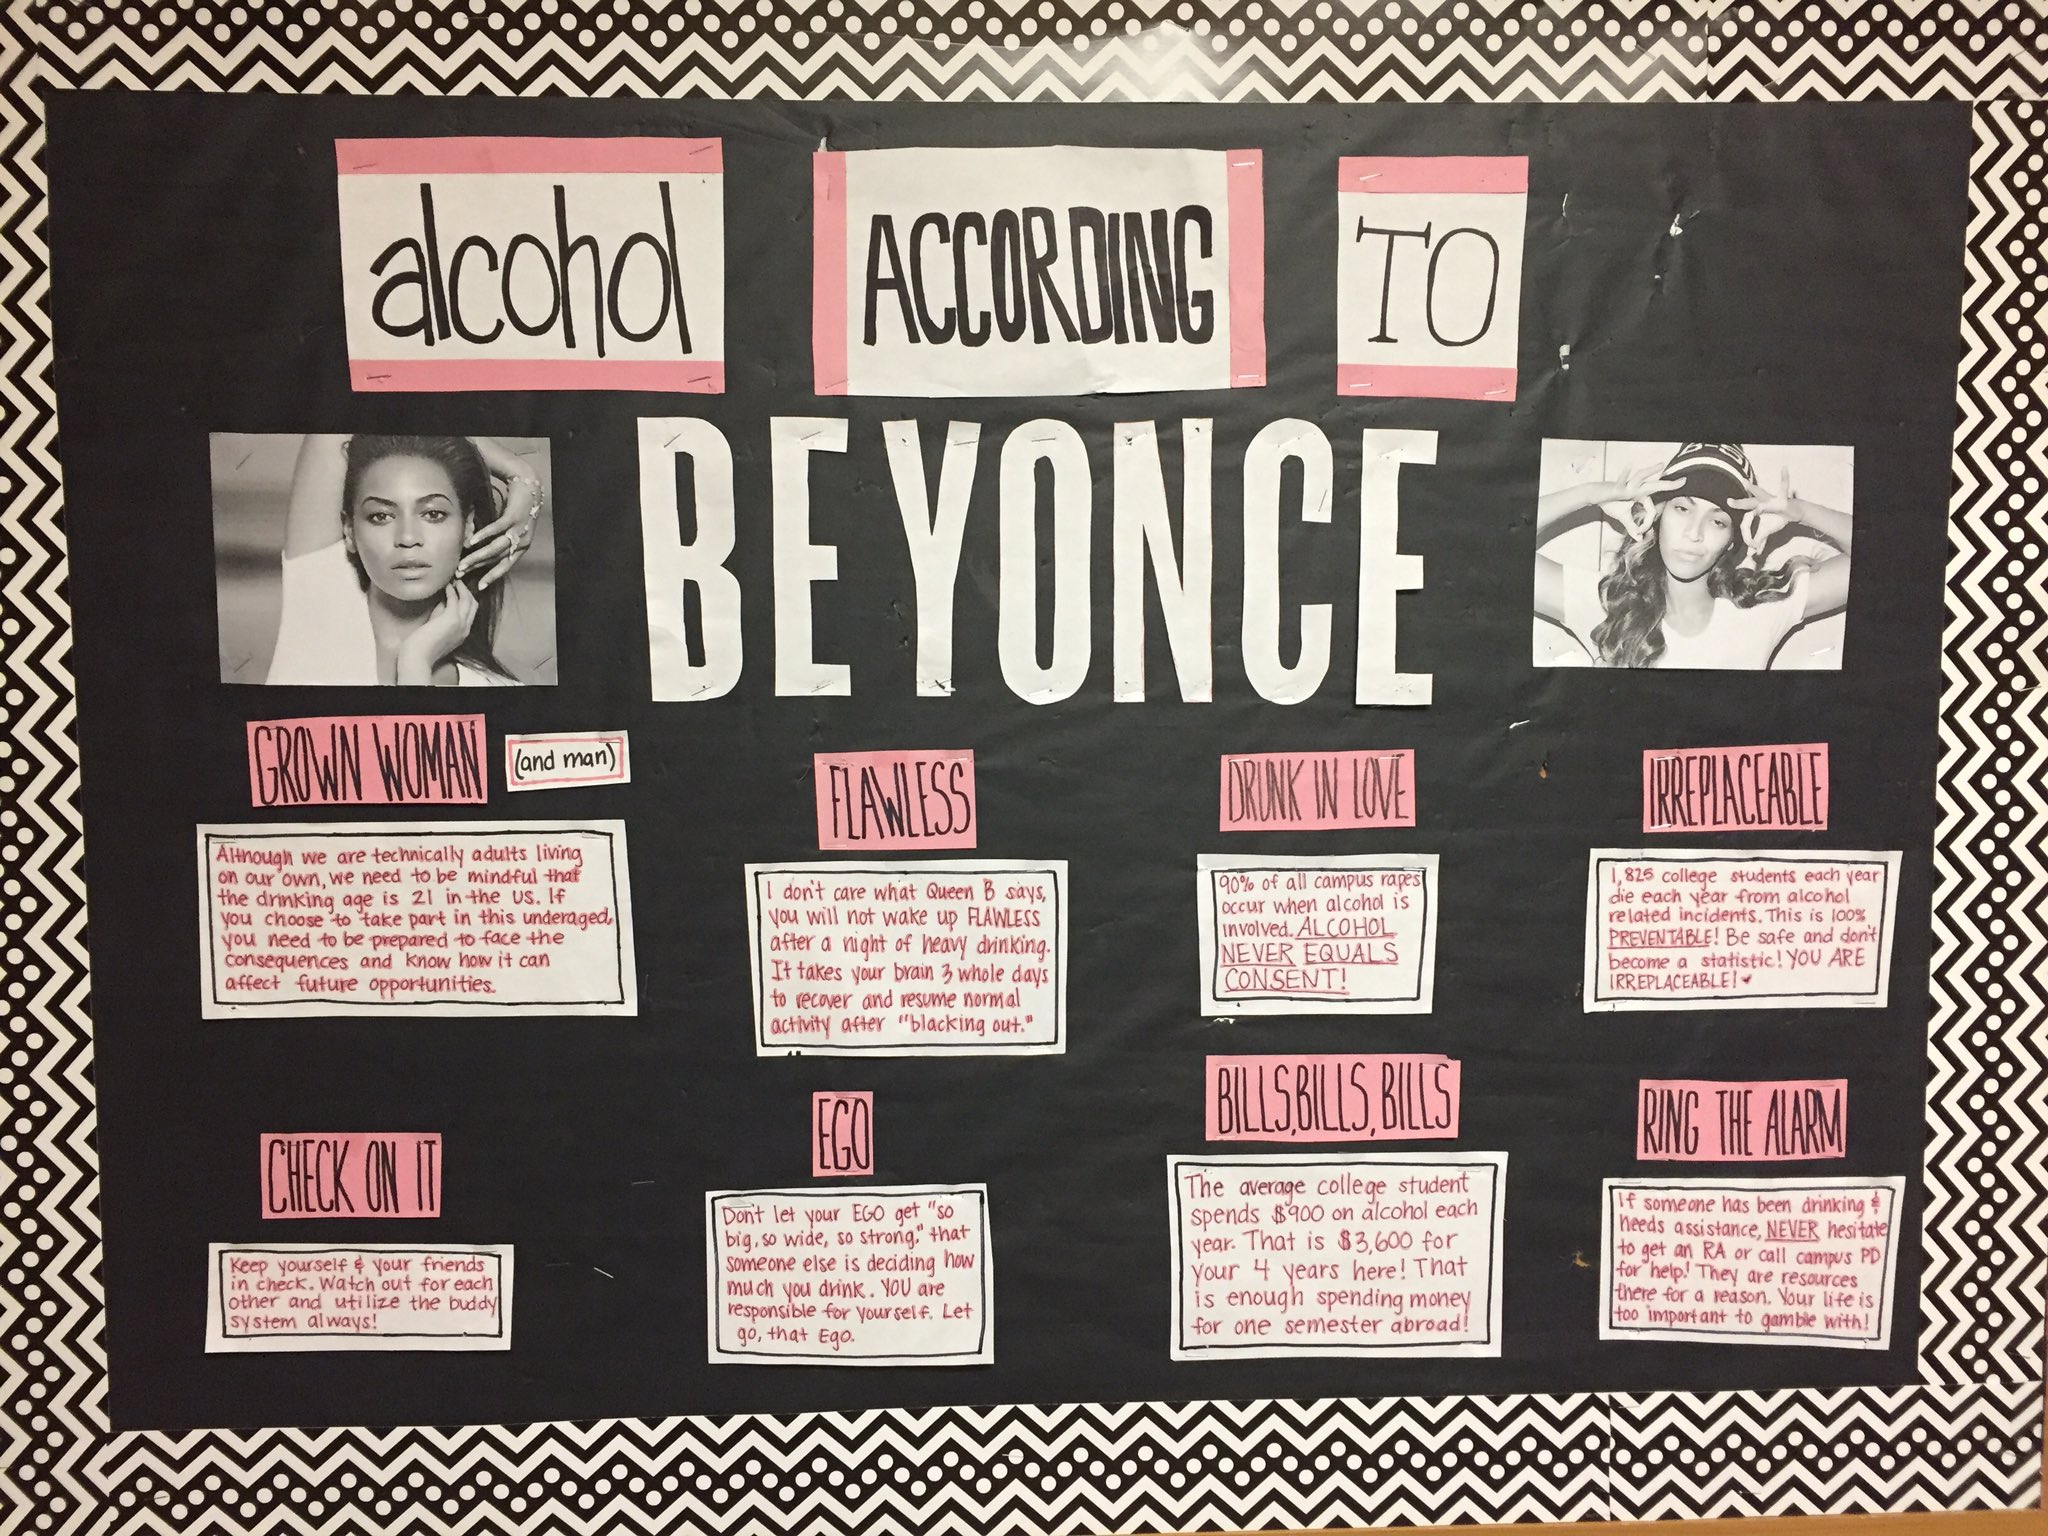 alcohol
ACCORDING
TO
BEYONCE
GROWN WOMAN
(and man)
Although we are technically adults living
on our own, we need to be mindful that
the drinking age is 21 in the US. If
you choose to take part in this underaged,
you need to be prepared to face the
consequences and know how it can
affect future opportunities.
FLAWLESS
I don't care what Queen B says,
you will not wake up FLAWLESS
after a night of heavy drinking.
It takes your brain 3 whole days
to recover and resume normal
activity after "blacking out."
DRUNK IN LOVE
90% of all campus rapes
occur when alcohol is
involved. ALCOHOL
NEVER EQUALS
CONSENT!
IRREPLACEABLE
1,825 college students each year
die each year from alcohol
related incidents. This is 100%
PREVENTABLE! Be safe and don't
become a statistic! YOU ARE
IRREPLACEABLE!
CHECK ON IT
Keep yourself & your friends
in check. Watch out for each
other and utilize the buddy
system always!
EGO
Dont let your EGO get "so
big, so wide, so strong." that
someone else is deciding how
much you drink. YOU are
responsible for yourself. Let
go, that Ego.
BILLS, BILLS, BILLS
The average college student
spends $900 on alcohol each
year. That is $3,600 for
your 4 years here! That
is enough spending money
for one semester abroad!
RING THE ALARM
If someone has been drinking &
needs assistance, NEVER hesitate
to get an RA or call campus PD
for help! They are resources
there for a reason. Your life is
too important to gamble with!